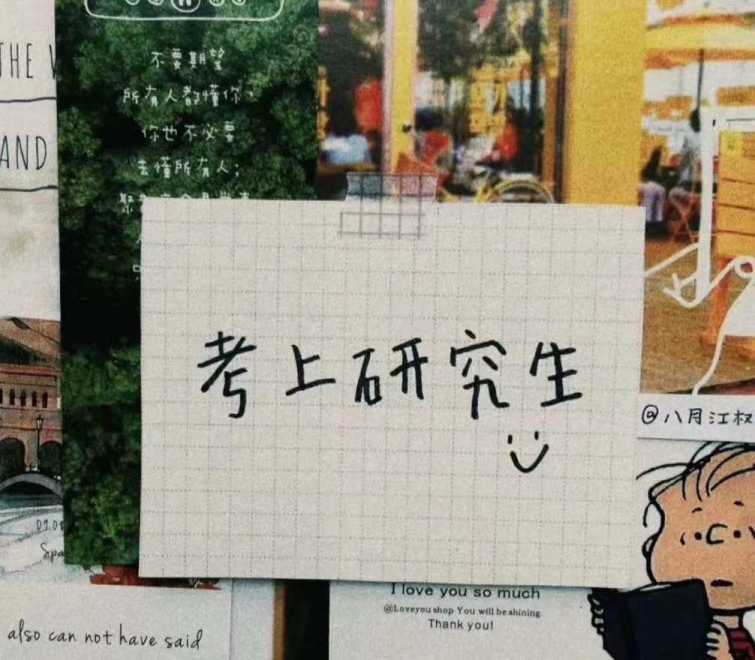 THE
AND
不要期望
所有人都懂你，
你也不必要
去懂所有人；
考上研究生
@八月江
I love you so much
@Loveyou shop You will be shining.
Thank you!
also can not have said